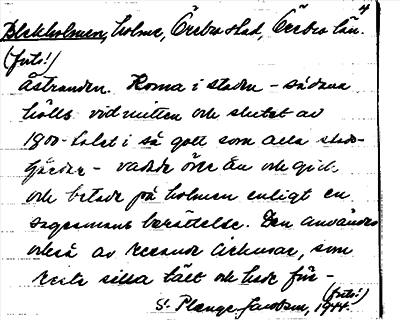 4
Blekholmen, holme, Örebro stad, Örebro län.
(forts!)
åstranden. Korna i staden – sådana
hölls vid mitten och slutet av
1800-talet i så gott som alla stads-
gårdar – vadade över ån och gick
och betade på holmen enligt en
sagesmans berättelse. Den användes
också av resande cirkusar, som
reste sina tält och hade för-
(forts!)
S. Plenge Jacobson, 1944.